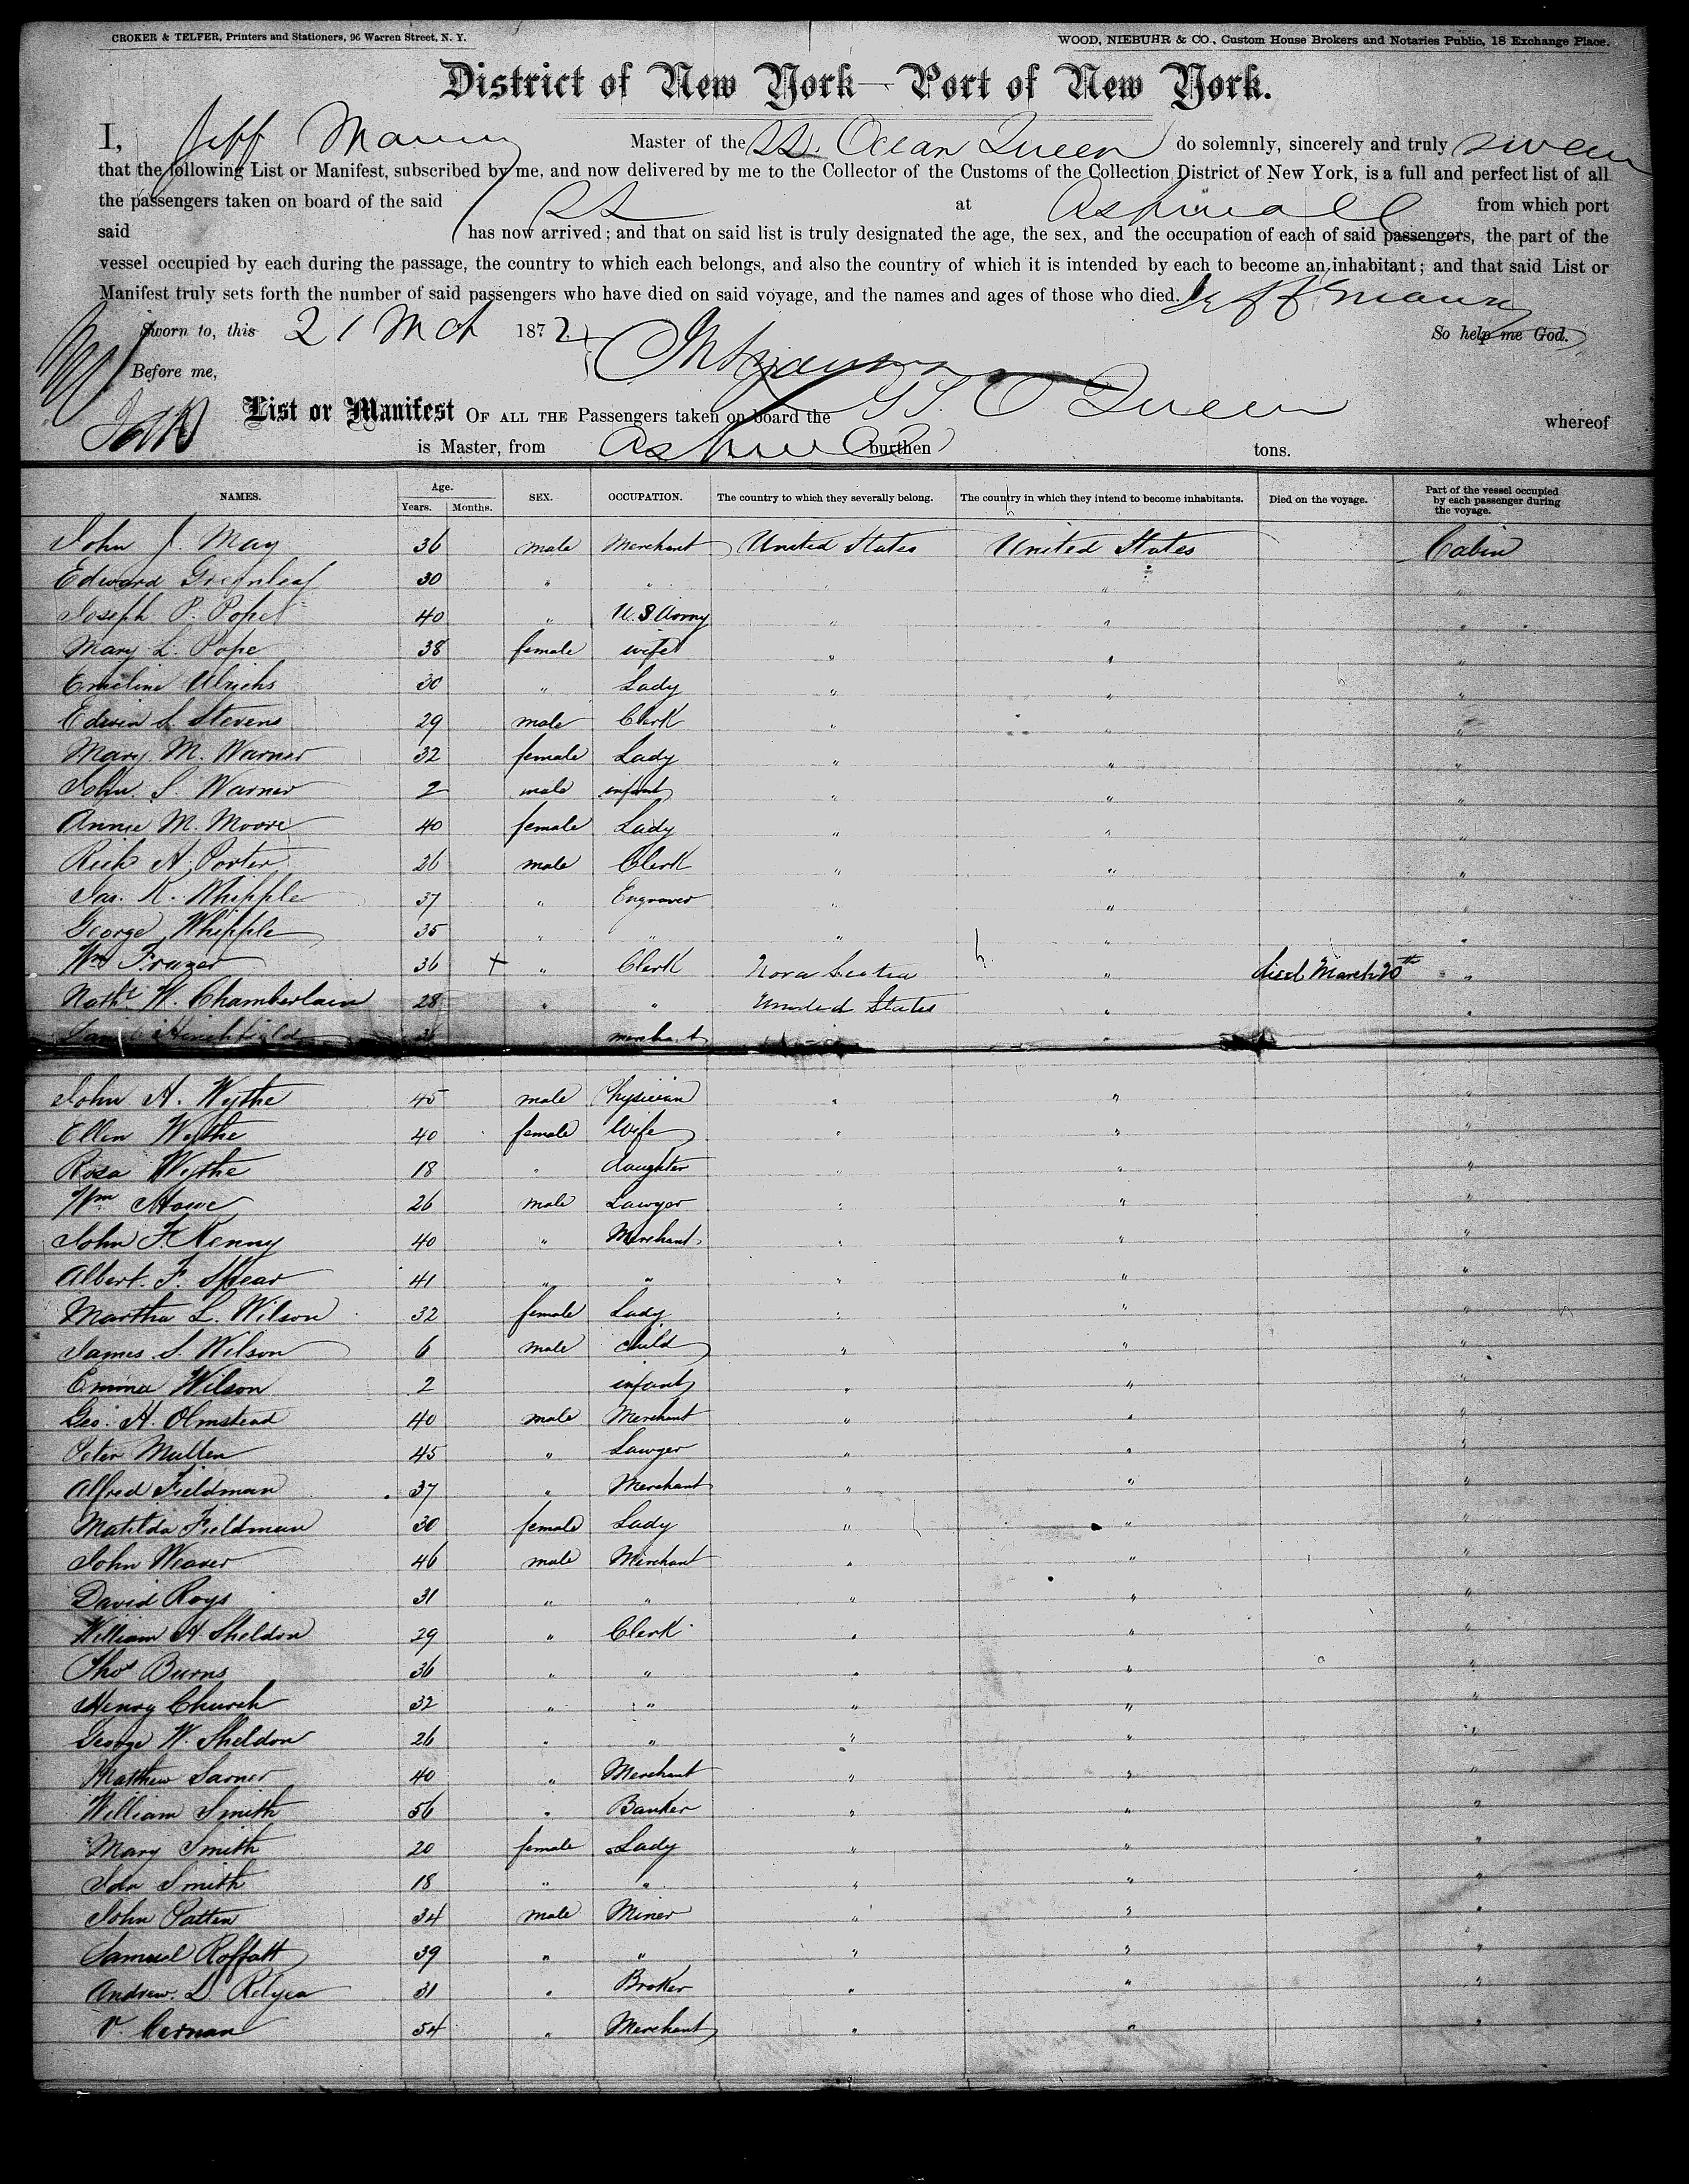 CROKER & TELFER, Printers and Stationers, 96 Warren Street, N. Y.
WOOD, NIEBUHR & CO., Custom House Brokers and Notaries Public, 18 Exchange Place.
District of New York—Port of New York.
I, Jeff Maury Master of the SS. Ocean Queen do solemnly, sincerely and truly swear
that the following List or Manifest, subscribed by me, and now delivered by me to the Collector of the Customs of the Collection District of New York, is a full and perfect list of all
the passengers taken on board of the said SS at Aspinwall from which port
said has now arrived; and that on said list is truly designated the age, the sex, and the occupation of each of said passengers, the part of the
vessel occupied by each during the passage, the country to which each belongs, and also the country of which it is intended by each to become an inhabitant; and that said List or
Manifest truly sets forth the number of said passengers who have died on said voyage, and the names and ages of those who died. Jeff Maury
Sworn to, this 21 Mch 1872 So help me God.
Before me,
List or Manifest OF ALL THE Passengers taken on board the O Queen whereof
is Master, from burthen tons.
NAMES. Age. Years. Months. SEX. OCCUPATION. The country to which they severally belong. The country in which they intend to become inhabitants. Died on the voyage. Part of the vessel occupied by each passenger during the voyage.
John J. May 36 male Merchant United States United States Cabin
Edward Greenleaf 30 " " " " "
Joseph P. Pope 40 " U.S Army " " "
Mary L. Pope 38 female wife " " "
Emeline Ulrichs 30 " Lady " " "
Edwin S. Stevens 29 male Clerk " " "
Mary M. Warner 32 female Lady " " "
John S. Warner 2 male infant " " "
Annie M. Moore 40 female Lady " " "
Rich A. Porter 26 male Clerk " " "
Jas. K. Whipple 37 " Engraver " " "
George Whipple 35 " " " " "
Wm Frazer 36 + " Clerk Nova Scotia " died March 20th "
Nathl W. Chamberlain 28 " " United States " "
Hirchfield merchant "
John A. Wythe 45 male Physician " " "
Ellen Wythe 40 female Wife " " "
Rosa Wythe 18 " daughter " " "
Wm Howe 26 male Lawyer " " "
John F. Kenny 40 " Merchant " " "
Albert F. Spear 41 " " " " "
Martha L. Wilson 32 female Lady " " "
James S. Wilson 6 male child " " "
Emma Wilson 2 infant " " "
Geo. H. Olmstead 40 male Merchant " " "
Peter Mullen 45 " Lawyer " " "
Alfred Fieldman 37 " Merchant " " "
Matilda Fieldman 30 female Lady " " "
John Weaver 46 male Merchant " " "
David Roys 31 " " " " "
William H. Sheldon 29 " Clerk " " "
Thos Burns 36 " " " " "
Henry Church 32 " " " " "
George W. Sheldon 26 " " " " "
Matthew Sarner 40 " Merchant " " "
William Smith 56 " Banker " " "
Mary Smith 20 female Lady " " "
Ida Smith 18 " " " " "
John Patten 34 male Miner " " "
Samuel Roffatt 39 " " " " "
Andrew L. Relyea 31 " Broker " " "
V. Cernan 54 " Merchant " " "